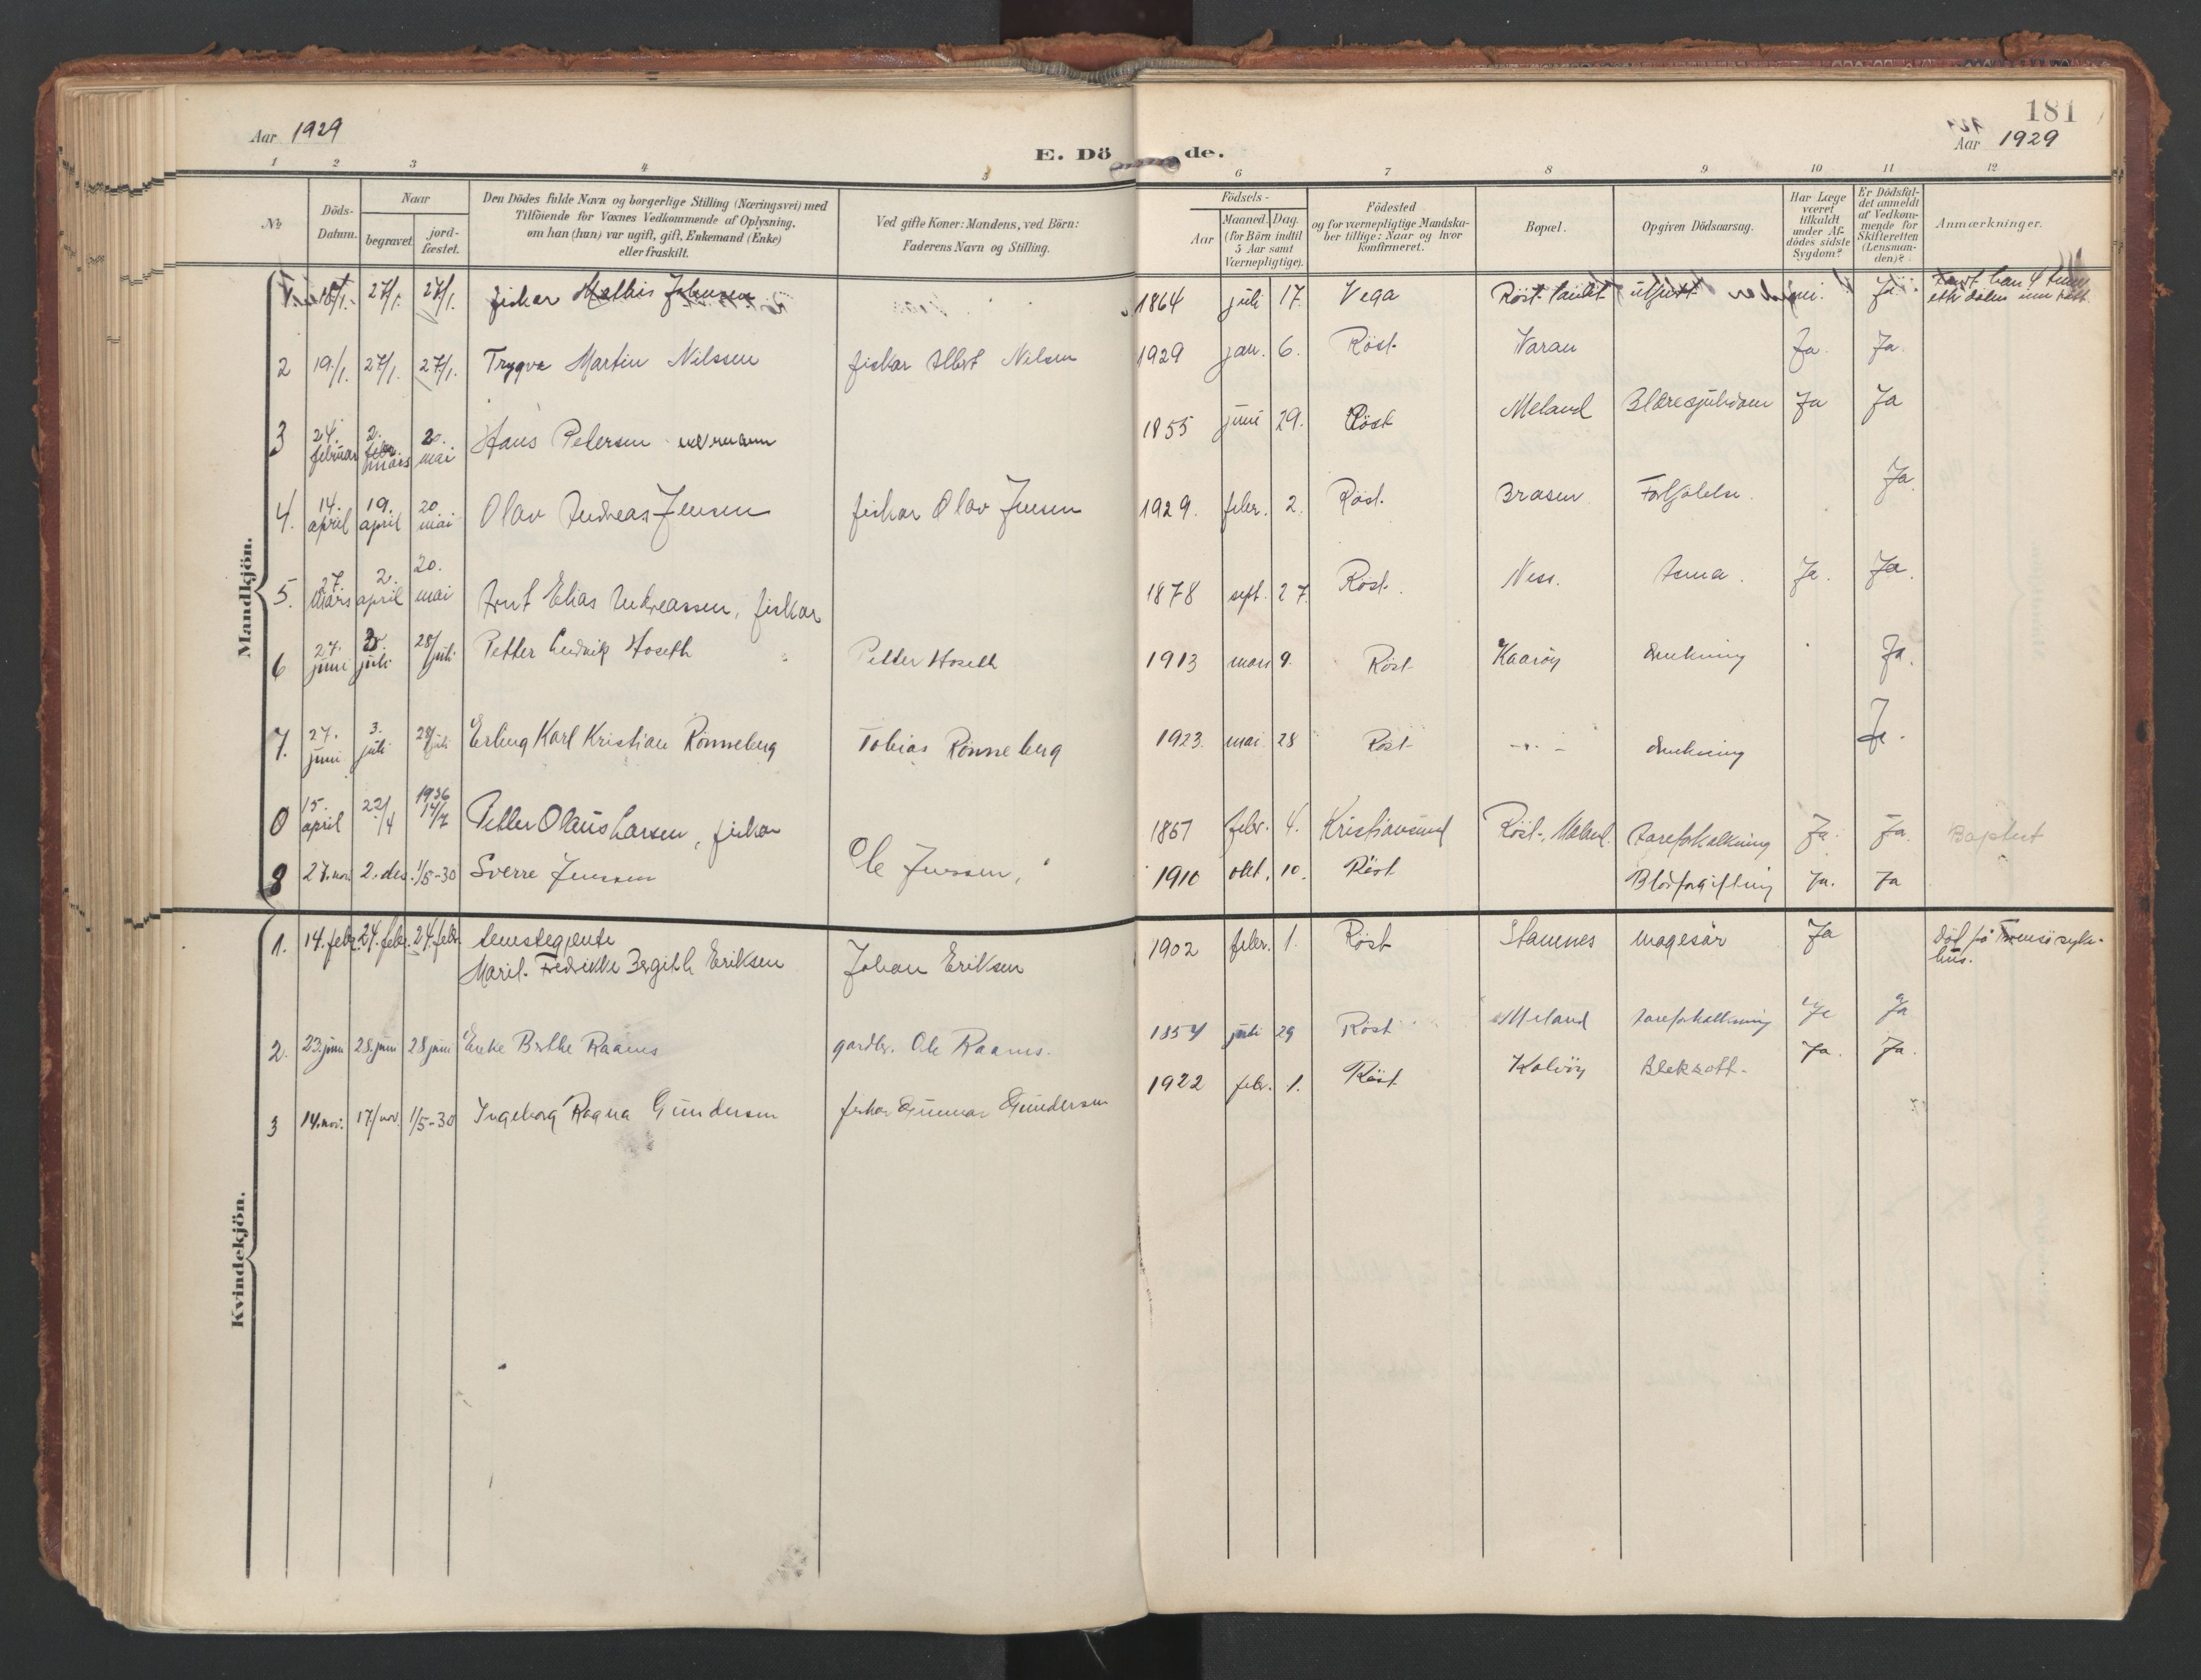 181
Aar 1929
Aar 1929
E. Dö de.
1 2 3 4 5 6 7 8 9 10 11 12
№
Döds-
Datum.
Naar
begravet.
jord-
fæstet.
Den Dödes fulde Navn og borgerlige Stilling (Næringsvei) med
Tilföiende for Voxnes Vedkommende af Oplysning,
om han (hun) var ugift, gift, Enkemand (Enke)
eller fraskilt.
Ved gifte Koner: Mandens, ved Börn:
Faderens Navn og Stilling.
Födsels-
Aar
Maaned. Dag.
(for Börn indtil
5 Aar samt
Værnepligtige).
Födested
og for værnepligtige Mandska-
ber tillige: Naar og hvor
konfirmeret.
Bopæl.
Opgiven Dödsaarsag.
Har Læge
været
tilkaldt
under Af-
dödes sidste
Sygdom?
Er Dödsfal-
det anmeldt
af Vedkom-
mende for
Skifteretten
(Lensman-
den)?
Anmærkninger.
Mandkjön.
1. 18/1. 27/1. 27/1. fiskar Mathis Johnsen 1864 juli 17. Vega Röst Ja
2 19/1. 27/1. 27/1. Trygve Martin Nilssen fiskar Albert Nilsen 1929 jan. 6. Röst Varan Ja. Ja.
3 24. februar 2. mars 20. mai Hans Petersen 1855 juni 29. Röst Meland Blæresjukdom Ja Ja
4. 14. april 19. april 20. mai Olav Andreas Jensen fiskar Olav Jensen 1929. febr. 2. Röst. Brasen Ja
5. 27. mars 2. april 20. mai Arnt Elias Andreassen, fiskar 1878 sept. 27. Röst. Ness. Ja. Ja.
6 27. juni 3. juli 28/juli Petter Ludvik Hoseth Petter Hoseth 1913 mars 9. Röst Kaaröy drukning Ja.
7. 27. juni 3. juli 28/juli Erling Karl Kristian Rönneberg Tobias Rönneberg 1923. mai 28 Röst -"- drukning Ja.
0 15. april 22/4 1936 14/7 Petter Olaus Larsen, fiskar 1867 febr. 4. Kristiansund Röst, Meland. Aareforkalkning Ja. Ja. Baptist
8 27. nov. 2. des. 1/5-30 Sverre Jenssen Ole Jenssen, 1910 okt. 10. Röst Blodforgiftning Ja. Ja
Kvindekjön.
1. 14. febr. 24. febr. 24. febr. tenestegjente
Marit Fredrikke Bergith Eriksen Johan Eriksen 1902 febr. 1. Röst Stamnes magesår Ja Död på Tromsö syke-
hus.
2. 23. juni 28. juni 28 juni Enke Berthe Raanes gardbr. Ole Raanes. 1854 juli 29 Röst Meland Aareforkalkning Ja Ja
3 14. nov. 17/nov. 1/5-30 Ingeborg Ragna Gundersen fiskar Gunnar Gundersen 1922 febr. 1. Röst Kalvöy Bleksott. Ja. Ja.